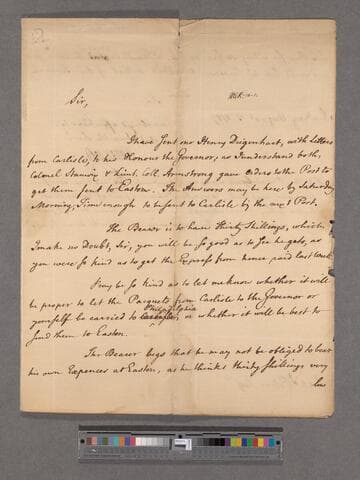 Sir,
I have sent one Henry Deigenhart, with Letters
from Carlisle, to his Honour the Governor; as I understand both,
Colonel Stanwix & Lieut. Coll. Armstrong gave orders to the Post to
get them sent to Easton. The Answers may be here by Saturday
Morning; Time enough to be sent to Carlisle by the next Post.
The Bearer is to have thirty Shillings, which,
I make no Doubt, Sir, you will be so good as to see he gets, as
you were so kind as to get the Express from hence paid last week.
Pray be so kind as to let me know whether it will
be proper to let the Pacquets from Carlisle to the Governor or
yourself be carried to Philadelphia, or whether it will be best to
send them to Easton.
The Bearer begs that he may not be obliged to bear
his own Expences at Easton, as he thinks thirty Shillings very
low